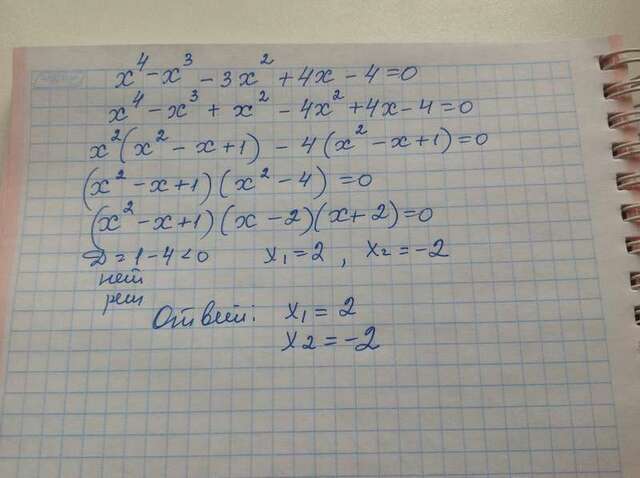 x⁴ - x³ - 3x² + 4x - 4 = 0
x⁴ - x³ + x² - 4x² + 4x - 4 = 0
x²(x² - x + 1) - 4(x² - x + 1) = 0
(x² - x + 1)(x² - 4) = 0
(x² - x + 1)(x - 2)(x + 2) = 0
D = 1 - 4 < 0 x₁ = 2, x₂ = -2
нет
реш
Ответ: x₁ = 2
x₂ = -2